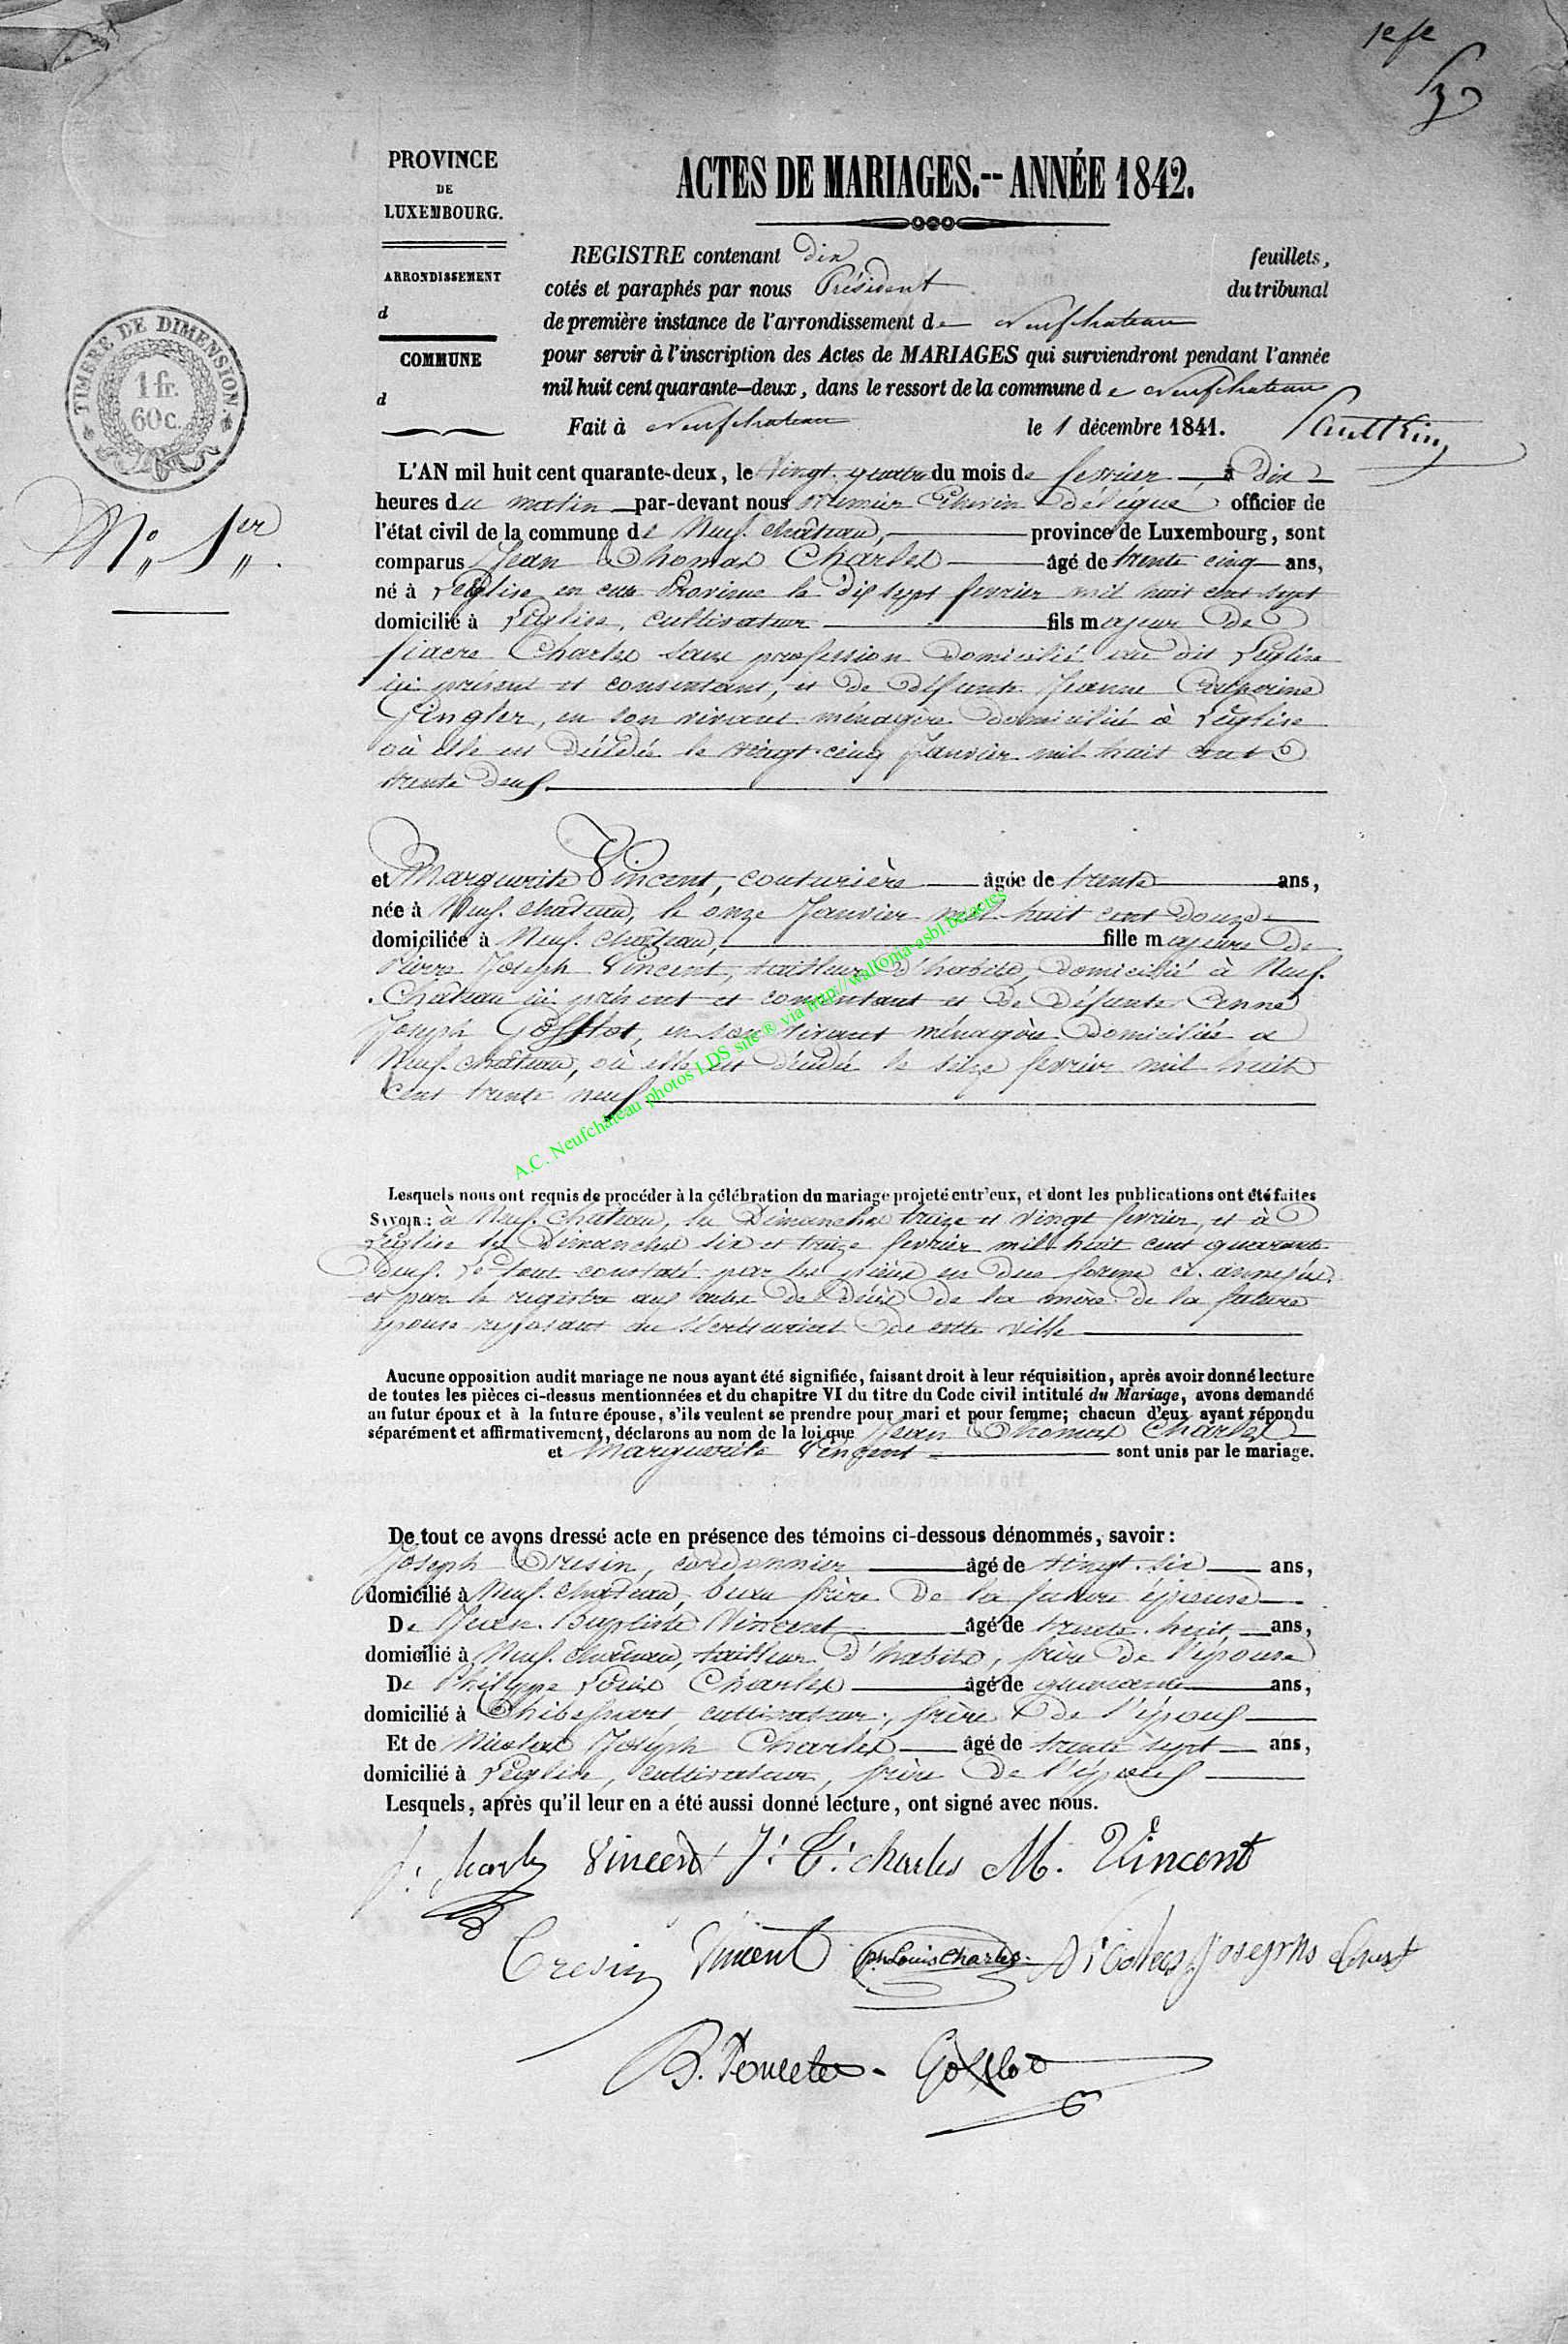 1er fe
PROVINCE
DE
LUXEMBOURG.
ARRONDISSEMENT
d
COMMUNE
d
TIMBRE DE DIMENSION.
1 fr.
60 c.
N° 1er
ACTES DE MARIAGES.-- ANNÉE 1842.
REGISTRE contenant dix feuillets,
cotés et paraphés par nous Président du tribunal
de première instance de l'arrondissement de Neufchateau
pour servir à l'inscription des Actes de MARIAGES qui surviendront pendant l'année
mil huit cent quarante-deux, dans le ressort de la commune de Neufchateau
Fait à Neufchateau le 1 décembre 1841.
L'AN mil huit cent quarante-deux, le vingt-quatre du mois de fevrier à dix
heures du matin par-devant nous premier Echevin délégué officier de
l'état civil de la commune de Neuf-château, province de Luxembourg, sont
comparus Jean Thomas Charles âgé de trente cinq ans,
né à Léglise en cette Province le dix sept fevrier mil huit cent sept
domicilié à Léglise, cultivateur fils majeur de
fiacre Charles sans profession domicilié au dit Léglise
ici présent et consentant, et de défunte Jeanne Catherine
Gengler, en son vivant ménagère domiciliée à Léglise
où elle est décédée le vingt-cinq Janvier mil huit cent
trente deux.
et Marguerite Vincent, couturière âgée de trente ans,
née à Neuf-château, le onze Janvier mil huit cent douze
domiciliée à Neuf-château, fille majeure de
Pierre Joseph Vincent, tailleur d'habits, domicilié à Neuf-
château ici présent et consentant et de défunte Anne
Joseph Gofflot, en son vivant ménagère domiciliée à
Neuf-château, où elle est décédée le seize fevrier mil huit
cent trente neuf
A.C. Neufchâteau photos LDS site ® via http://wallonia-asbl.be/actes
Lesquels nous ont requis de procéder à la célébration du mariage projeté entr'eux, et dont les publications ont été faites
SAVOIR: à Neuf-château, les Dimanches treize et vingt fevrier, et à
Léglise les Dimanches six et treize fevrier mil huit cent quarante
deux. Le tout constaté par les pièces en due forme ci-annexées
et par le registre aux actes de décès de la mère de la future
épouse reposant au secrétariat de cette ville
Aucune opposition audit mariage ne nous ayant été signifiée, faisant droit à leur réquisition, après avoir donné lecture
de toutes les pièces ci-dessus mentionnées et du chapitre VI du titre du Code civil intitulé du Mariage, avons demandé
au futur époux et à la future épouse, s'ils veulent se prendre pour mari et pour femme; chacun d'eux ayant répondu
séparément et affirmativement, déclarons au nom de la loi que Jean Thomas Charles
et Marguerite Vincent sont unis par le mariage.
De tout ce avons dressé acte en présence des témoins ci-dessous dénommés, savoir:
Joseph Cresin, cordonnier âgé de vingt-six ans,
domicilié à Neuf-château, beau frère de la future épouse
De Jean-Baptiste Vincent âgé de trente-huit ans,
domicilié à Neuf-château, tailleur d'habits, frère de l'épouse
De Philippe Louis Charles âgé de quarante ans,
domicilié à Thibessart, cultivateur, frère de l'époux
Et de Nicolas Joseph Charles âgé de trente sept ans,
domicilié à Léglise, cultivateur, frère de l'époux
Lesquels, après qu'il leur en a été aussi donné lecture, ont signé avec nous.
f. Charles Vincent J. T. Charles M. Vincent
Cresin Vincent Ph Louis Charles Nicolas Joseph
Gofflot